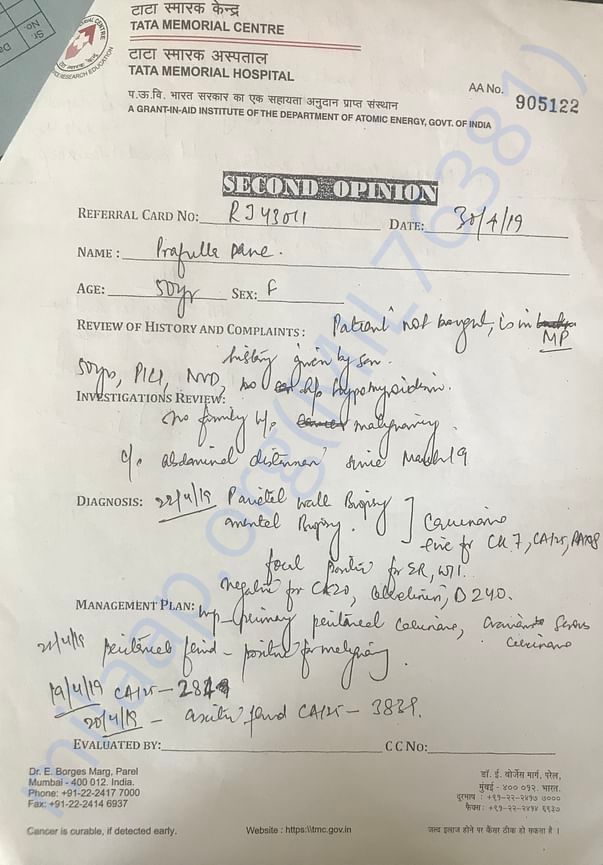 Sr
No
टाटा स्मारक केन्द्र
TATA MEMORIAL CENTRE
टाटा स्मारक अस्पताल
TATA MEMORIAL HOSPITAL
प.ऊ.वि. भारत सरकार का एक सहायता अनुदान प्राप्त संस्थान
A GRANT-IN-AID INSTITUTE OF THE DEPARTMENT OF ATOMIC ENERGY, GOVT. OF INDIA
AA No. 905122
SECOND OPINION
REFERRAL CARD NO: RJ43011 DATE: 30/4/19
NAME: Prafulla Dane.
AGE: 50yr SEX: F
REVIEW OF HISTORY AND COMPLAINTS: Patient not bought, is in MP
history given by son
50yrs, P1L1, NVD, no h/o hypothyroidism.
INVESTIGATIONS REVIEW:
no family h/o malignancy.
c/o abdominal distension since March 19
DIAGNOSIS: 22/4/19 Parietal wall Biopsy
omental Biopsy. ] Carcinoma
+ive for CK7, CA125, PAX8
focal positive for ER, WT1.
negative for CK20, calretinin, D240.
MANAGEMENT PLAN: imp - primary peritoneal carcinoma, Serous Carcinoma
peritoneal fluid - positive for malignancy.
19/4/19 CA125 -
20/4/19 - ascitic fluid CA125 - 3839.
EVALUATED BY: CC NO:
Dr. E. Borges Marg, Parel
Mumbai - 400 012. India.
Phone: +91-22-2417 7000
Fax: +91-22-2414 6937
डॉ. ई. बोर्जेस मार्ग, परेल,
मुंबई - ४०० ०१२. भारत.
दूरभाष : +९१-२२-२४१७ ७०००
फैक्स : +९१-२२-२४१४ ६९३७
Cancer is curable, if detected early. Website : https:\\tmc.gov.in जल्द इलाज होने पर कैंसर ठीक हो सकता है ।